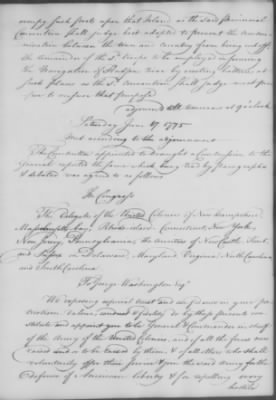 occupy such posts upon that Island as the said Provincial
Convention shall judge best adapted to prevent the commu-
nication between the town and country from being cut off
the remainder of the sd. Troops to be employed in securing
the Navigation of Hudson River by erecting batteries at
such places as the sd. convention shall judge most pro-
per to answer that purpose
adjourned till tomorrow at 9 oClock
Saturday June 17. 1775
met according to the adjournment
The Committee appointed to draught a Commission to the
General reported the same which being read by paragraphs
& debated was agreed to as follows
In Congress
The Delegates of the United Colonies of New hampshire,
Massachusetts bay, Rhode-island, Connecticut, New York,
New Jersey, Pennsylvania, the counties of New Castle, Kent
and Sussex on Delaware, Maryland, Virginia, North Carolina
and South Carolina
To George Washington Esqr
We reposing especial trust and confidence in your pa-
triotism valour, conduct & fidelity do by these presents con-
stitute and appoint you to be General & Commander in chief
of the army of the United Colonies, and of all the forces now
raised or to be raised by them, & of all others who shall
voluntarily offer their service & join the said army for the
defence of American liberty & for repelling every
hostile